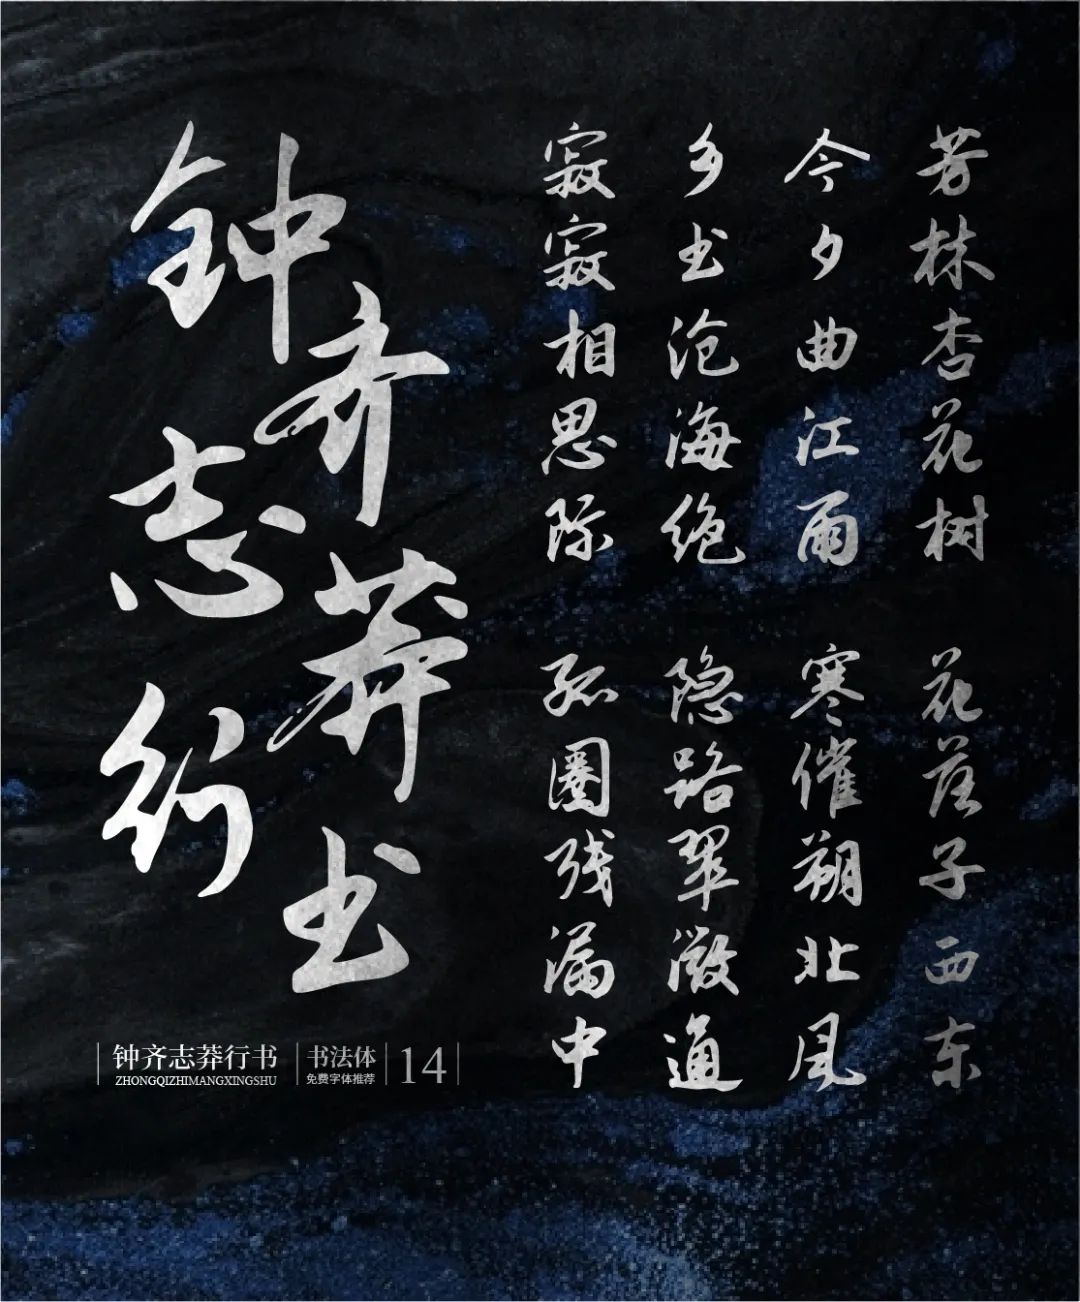 钟齐志莽行书
芳林杏花树
花落子西东
今夕曲江雨
寒催朔北风
乡书沧海绝
隐路翠微通
寂寂相思际
孤圈残漏中
钟齐志莽行书
ZHONGQIZHIMANGXINGSHU
书法体
免费字体推荐
14